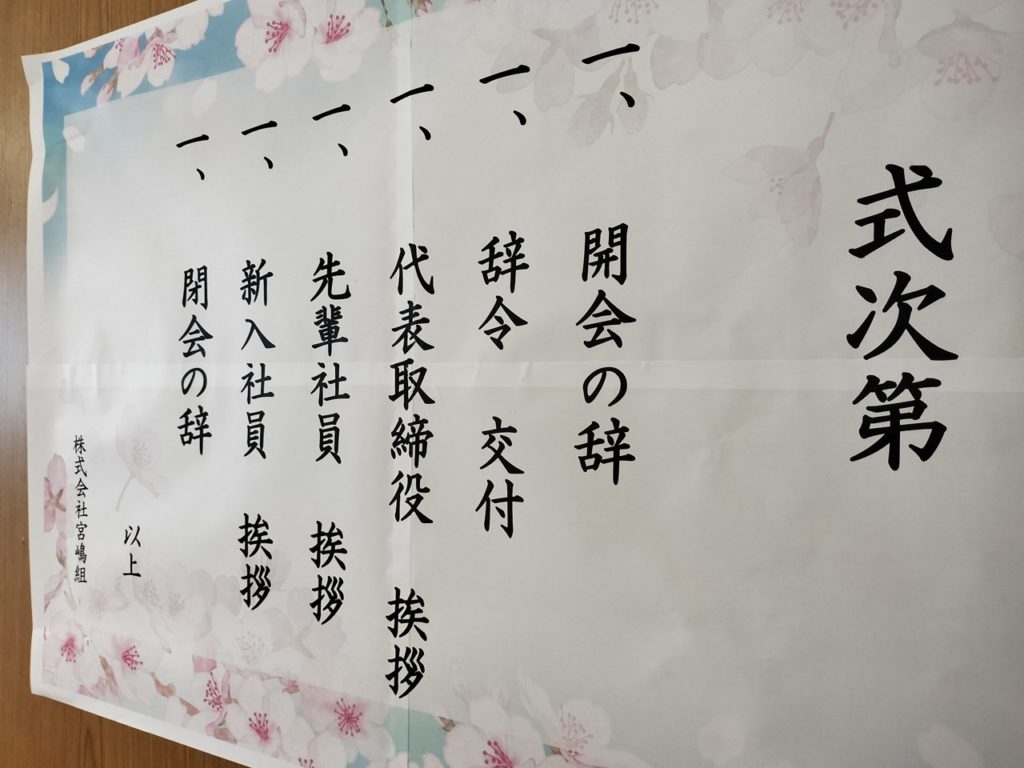 式次第
一、開会の辞
一、辞令 交付
一、代表取締役 挨拶
一、先輩社員 挨拶
一、新入社員 挨拶
一、閉会の辞
以上
株式会社宮嶋組